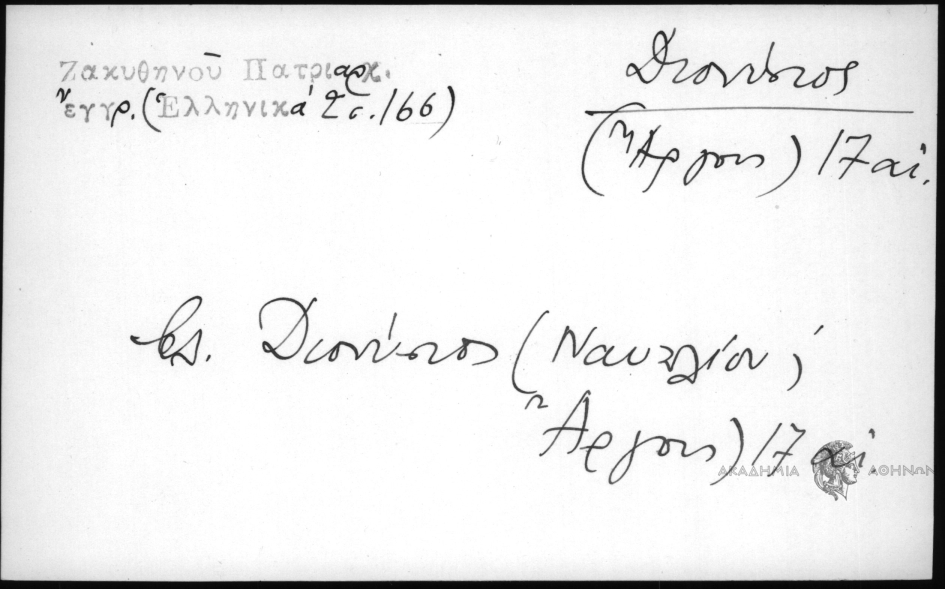 Ζακυθηνοῦ Πατριαρχ.
ἔγγρ. (Ἑλληνικά 2 σ. 166)
Διονύσιος
(Ἄργους) 17 αἰ.
βλ. Διονύσιος (Ναυπλίου,
Ἄργους) 17 αἰ.
ΑΚΑΔΗΜΙΑ ΑΘΗΝΩΝ